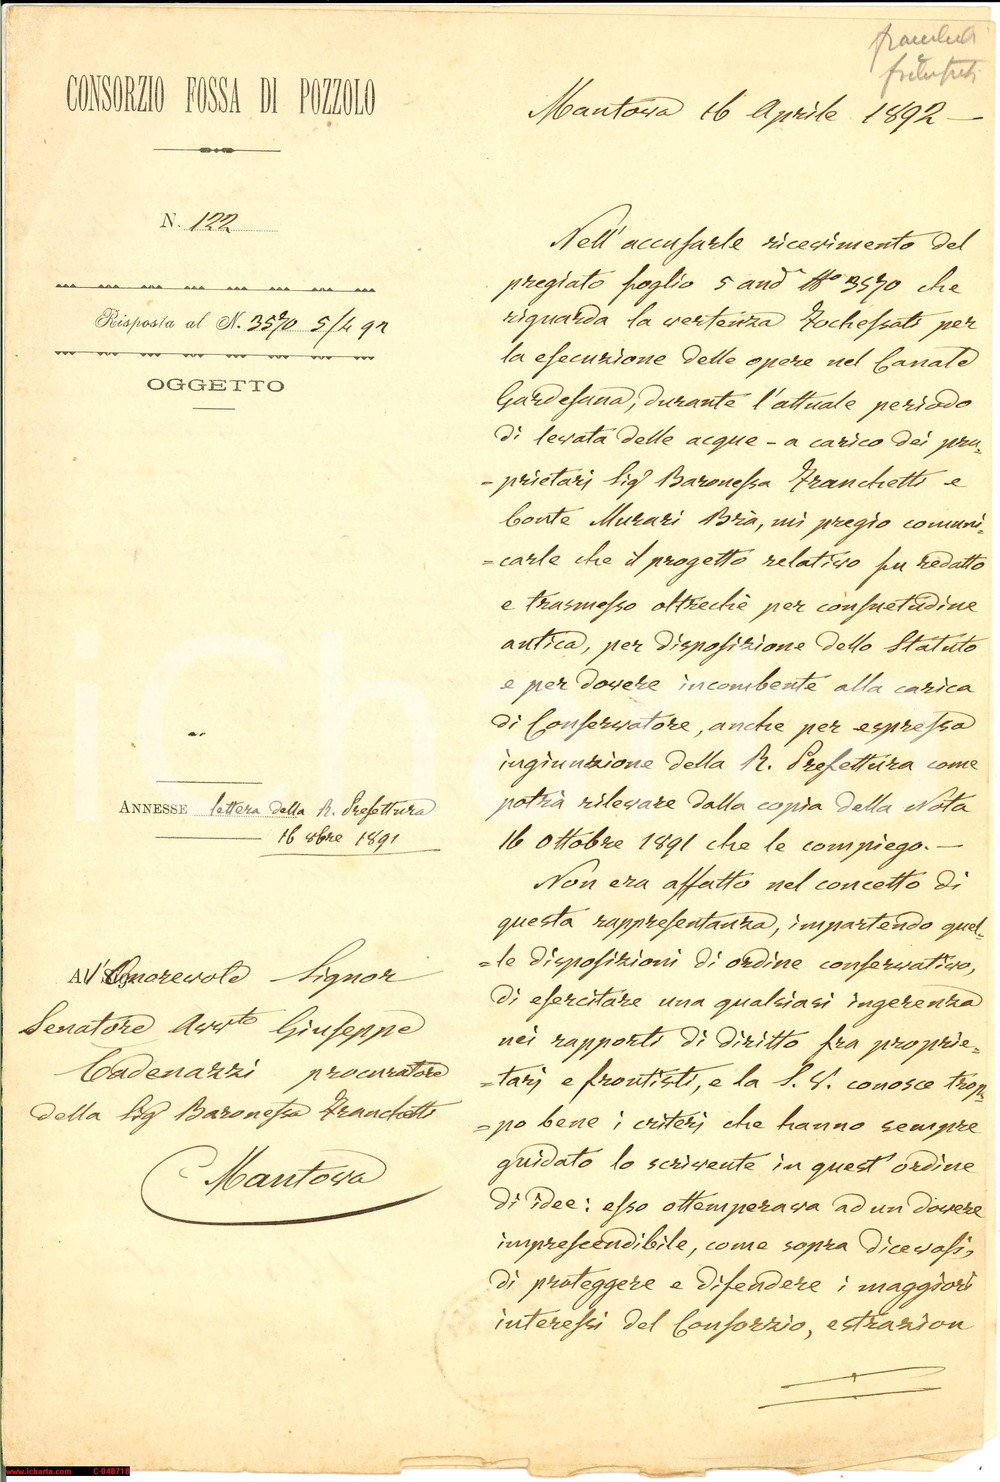 CONSORZIO FOSSA DI POZZOLO
N. 122
Risposta al N. 3570 5/4 92
OGGETTO
ANNESSE lettera della R. Prefettura
16 8bre 1891
All'Onorevole Signor
Senatore Avv.to Giuseppe
Cadenazzi procuratore
della Sig.ª Baronessa Franchetti
Mantova
Mantova 16 Aprile 1892 —
Nell'accusarle ricevimento del
pregiato foglio 5 and.e N.o 3570 che
riguarda la vertenza Fochessati per
la esecuzione delle opere nel Canale
Gardesana, durante l'attuale periodo
di levata delle acque - a carico dei pro-
-prietarj Sig.ª Baronessa Franchetti e
Conte Murari Brà, mi pregio comuni-
=carle che il progetto relativo fu redatto
e trasmesso oltrechè per consuetudine
antica, per disposizione dello Statuto
e per dovere incombente alla carica
di Conservatore, anche per espressa
ingiunzione della R. Prefettura come
potrà rilevare dalla copia della Nota
16 Ottobre 1891 che le compiego. —
Non era affatto nel concetto di
questa rappresentanza, impartendo quel-
=le disposizioni di ordine conservativo,
di esercitare una qualsiasi ingerenza
nei rapporti di diritto fra proprie=
=tarj e frontisti, e la S. V. conosce trop=
=po bene i criterj che hanno sempre
guidato lo scrivente in quest'ordine
di idee: esso ottemperava ad un dovere
imprescendibile, come sopra dicevasi,
di proteggere e difendere i maggiori
interessi del Consorzio, estrazion
www.icharta.com C-048718